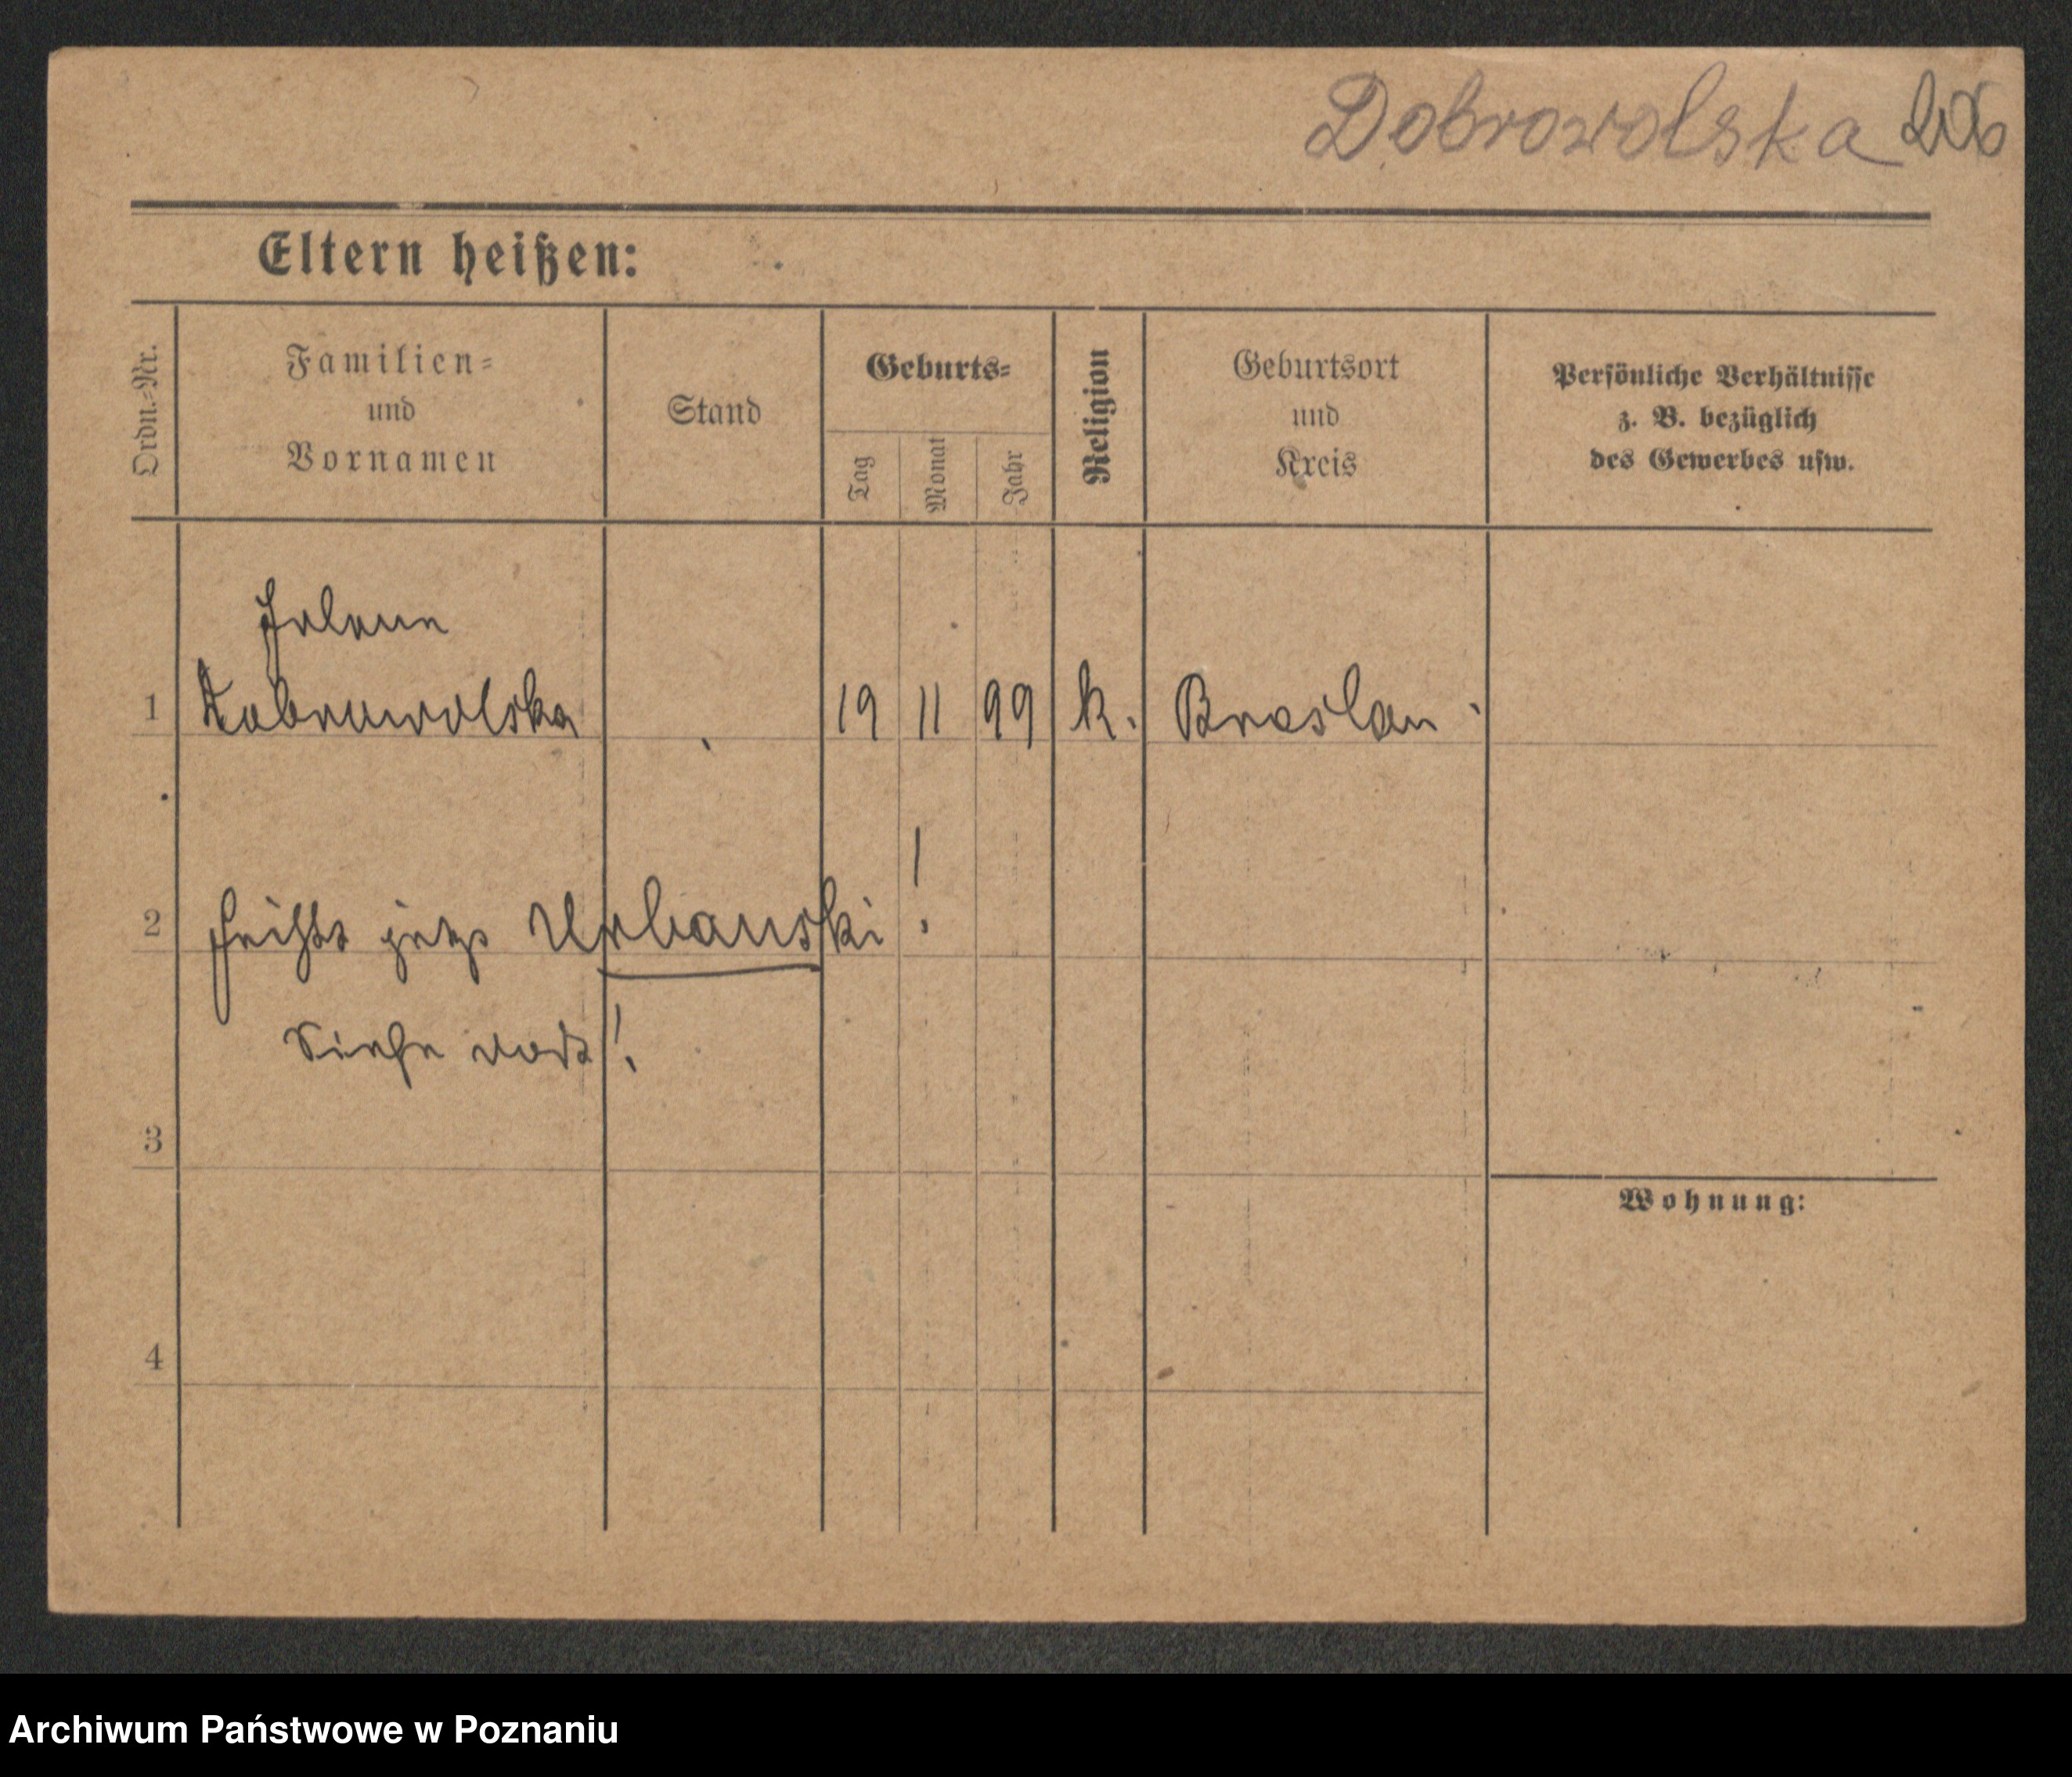 Dobrowolska 206
Eltern heißen:
Ordn.-Nr.
Familien-
und
Vornamen
Stand
Geburts-
Tag
Monat
Jahr
Religion
Geburtsort
und
Kreis
Persönliche Verhältnisse
z. B. bezüglich
des Gewerbes usw.
1 Dobrowolska 19 11 99 k. Breslau
2 heißt jetzt Urbanski!
Siehe dort!
3
Wohnung:
4
Archiwum Państwowe w Poznaniu